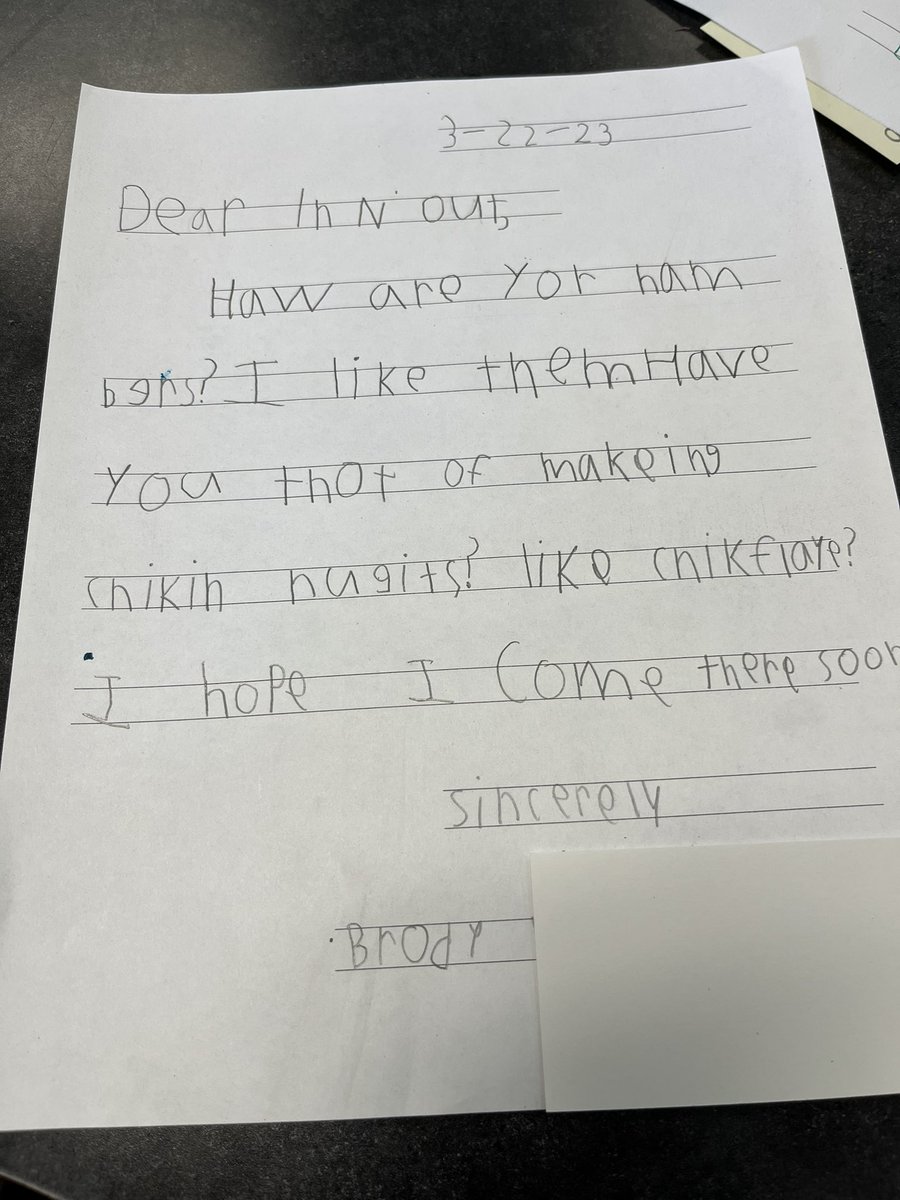 3-22-23
Dear In N' out,
Haw are Yor ham
bgrs? I like them Have
You thot of makeing
chikin nugits? like chikflaye?
I hope I Come there soon
sincerely
Brody